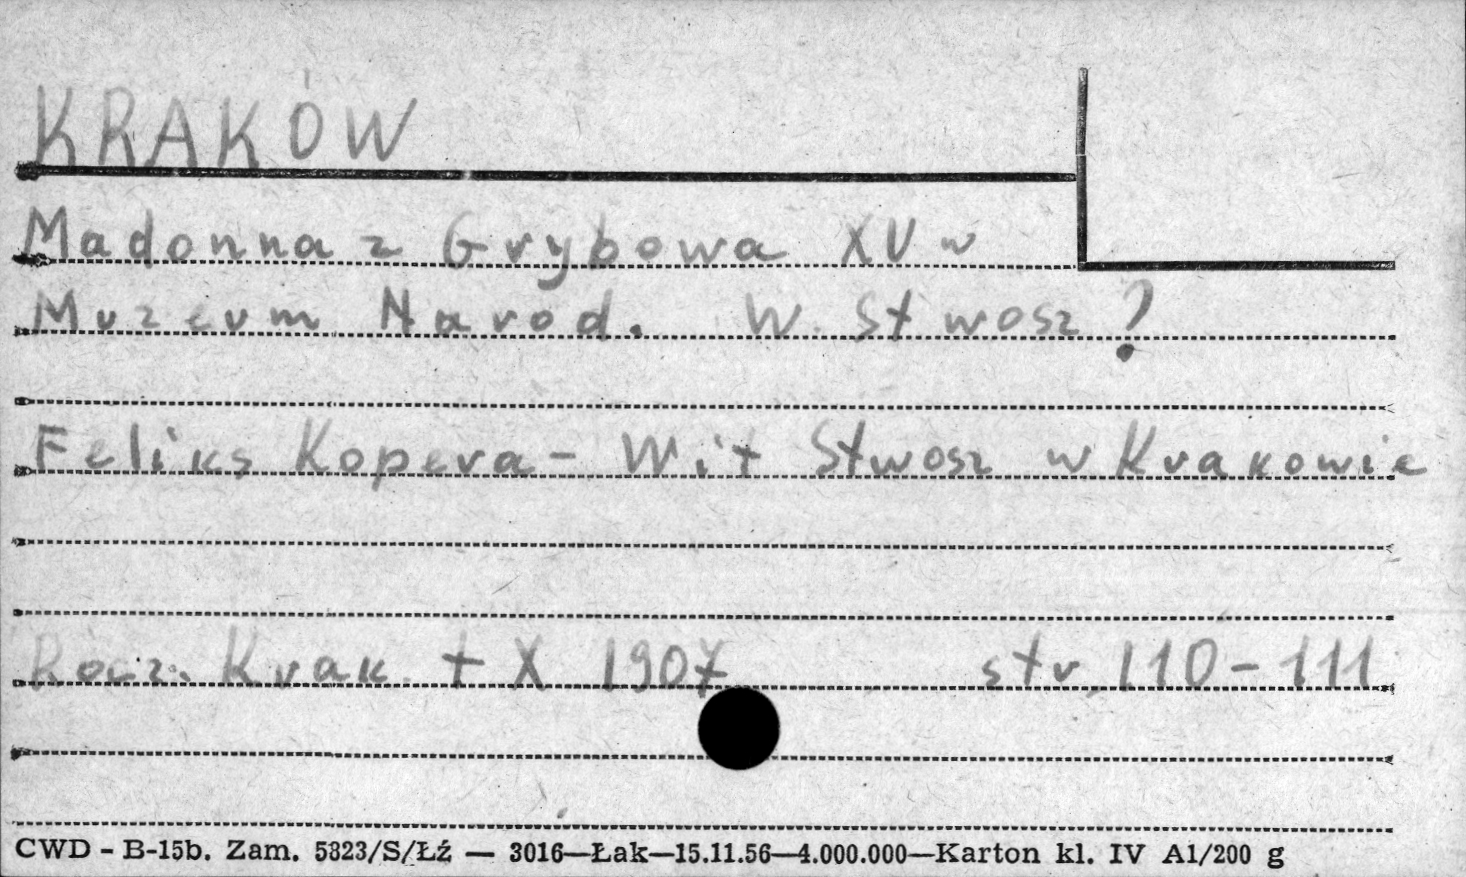 KRAKÓW
Madonna z Grybowa XV w
Muzeum Narod. W. Stwosz?
Feliks Kopera - Wit Stwosz w Krakowie
Rocz. Krak. t X 1907 str. 110-111
CWD - B-15b. Zam. 5323/S/Łź — 3016—Łak—15.11.56—4.000.000—Karton kl. IV A1/200 g